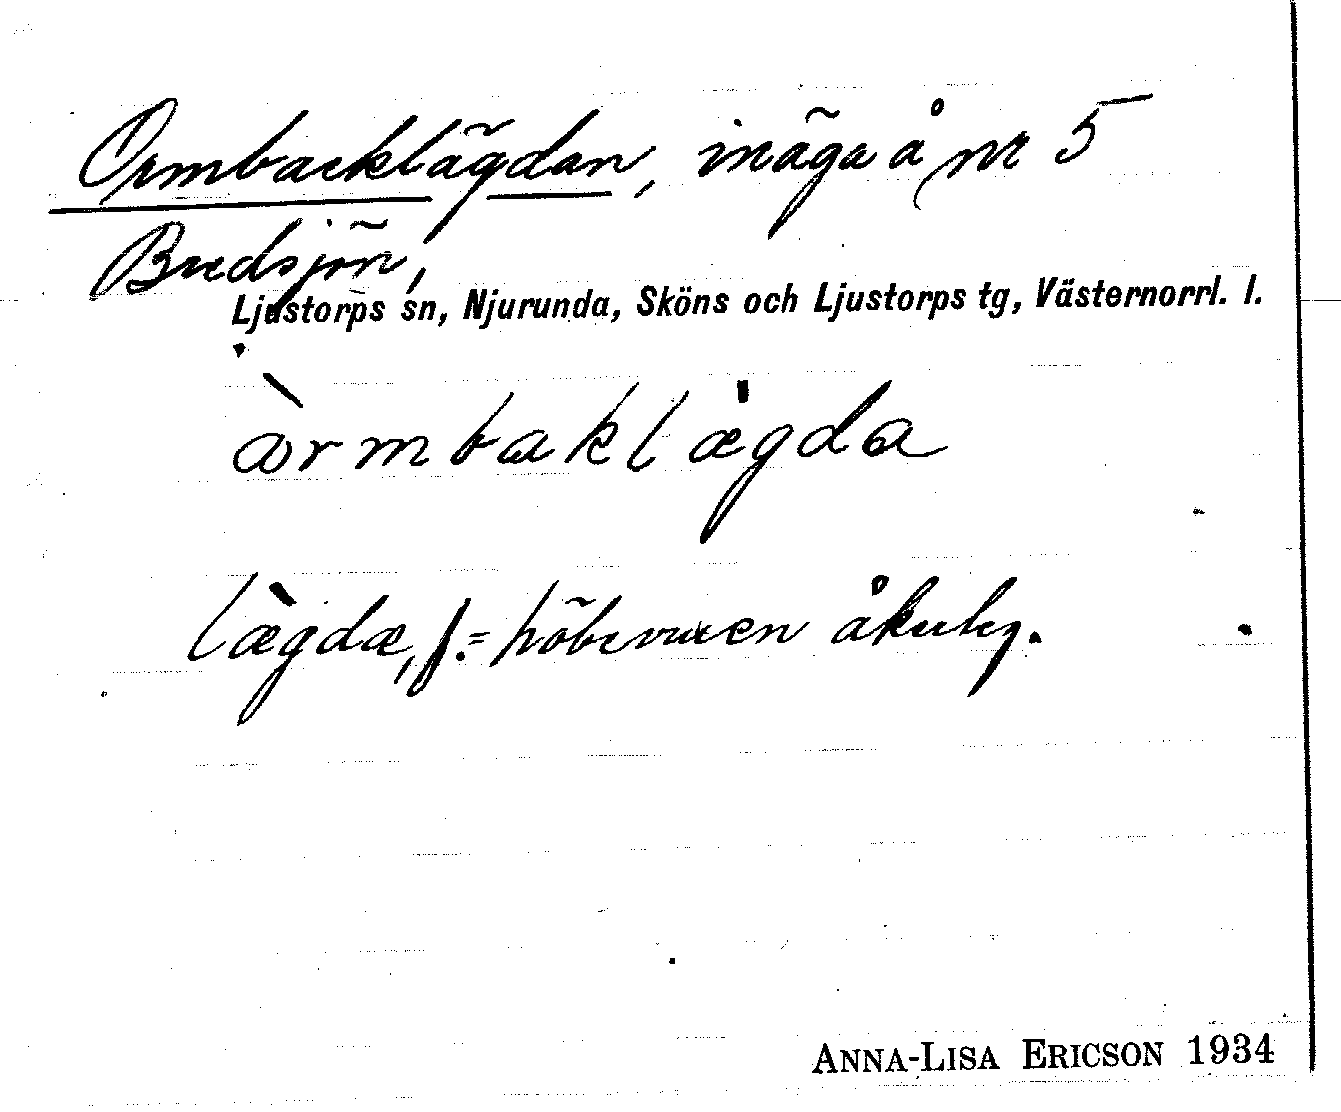 Ormbacklägdan, inäga å nr 5
Bredsjön,
Ljustorps sn, Njurunda, Sköns och Ljustorps tg, Västernorrl. l.
òrmbaklægda
lægdæ, f. = höbevuxen åkerlig.
ANNA-LISA ERICSON 1934